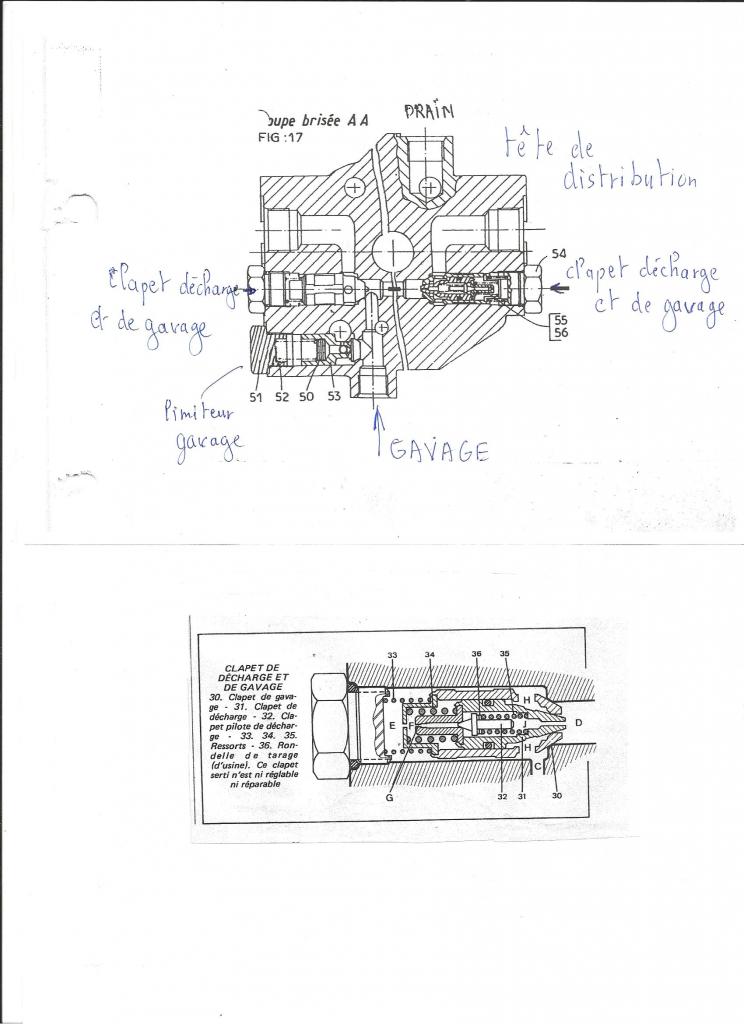 oupe brisée A A
FIG : 17
DRAIN
tête de
distribution
54
clapet décharge
et de gavage
clapet décharge
et de gavage
55
56
51 52 50 53
limiteur
gavage
GAVAGE
CLAPET DE
DÉCHARGE ET
DE GAVAGE
30. Clapet de gava-
ge - 31. Clapet de
décharge - 32. Cla-
pet pilote de déchar-
ge - 33. 34. 35.
Ressorts - 36. Ron-
delle de tarage
(d'usine). Ce clapet
serti n'est ni réglable
ni réparable
33 34 36 35
H
E F J D
H
C
G 32 31 30